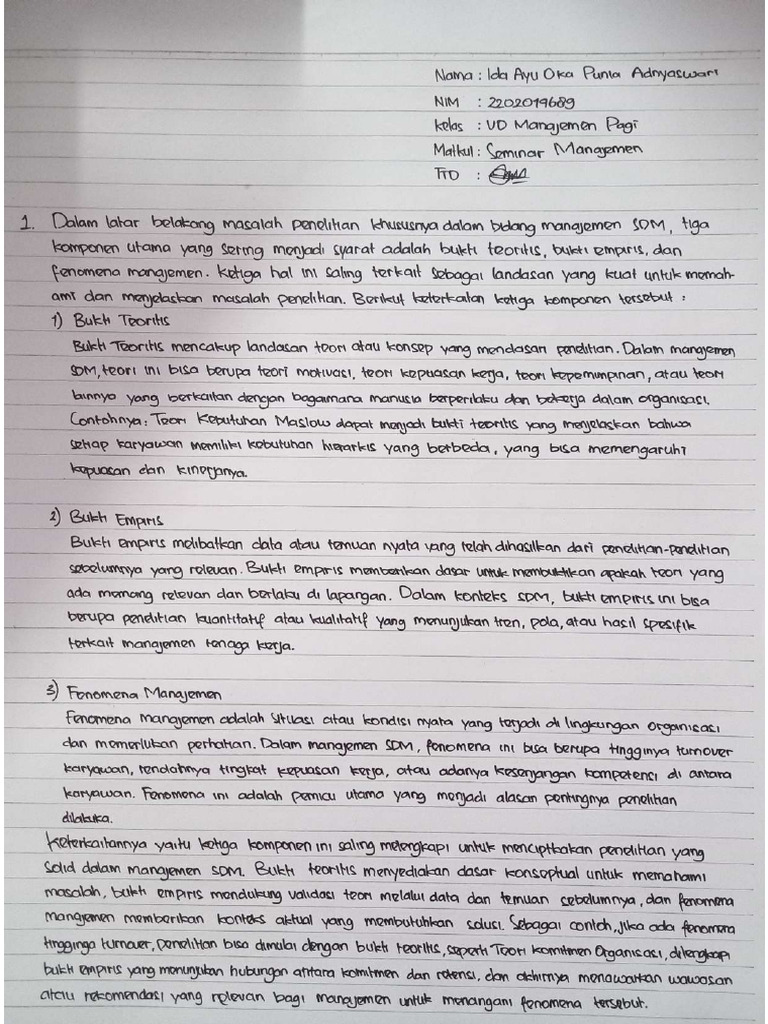 Nama : Ida Ayu Oka Punia Adnyaswari
NIM : 2202019689
Kelas : VD Manajemen Pagi
Matkul : Seminar Manajemen
TTD :
1. Dalam latar belakang masalah penelitian khususnya dalam bidang manajemen SDM, tiga
komponen utama yang sering menjadi syarat adalah bukti teoritis, bukti empiris, dan
fenomena manajemen. Ketiga hal ini saling terkait sebagai landasan yang kuat untuk memah-
ami dan menjelaskan masalah penelitian. Berikut keterkaitan ketiga komponen tersebut :
1) Bukti Teoritis
Bukti Teoritis mencakup landasan teori atau konsep yang mendasari penelitian. Dalam manajemen
SDM, teori ini bisa berupa teori motivasi, teori kepuasan kerja, teori kepemimpinan, atau teori
lainnya yang berkaitan dengan bagaimana manusia berperilaku dan bekerja dalam organisasi.
Contohnya : Teori Kebutuhan Maslow dapat menjadi bukti teoritis yang menjelaskan bahwa
setiap karyawan memiliki kebutuhan hierarkis yang berbeda, yang bisa memengaruhi
kepuasan dan kinerjanya.
2) Bukti Empiris
Bukti empiris melibatkan data atau temuan nyata yang telah dihasilkan dari penelitian-penelitian
sebelumnya yang relevan. Bukti empiris memberikan dasar untuk membuktikan apakah teori yang
ada memang relevan dan berlaku di lapangan. Dalam konteks SDM, bukti empiris ini bisa
berupa penelitian kuantitatif atau kualitatif yang menunjukan tren, pola, atau hasil spesifik
terkait manajemen tenaga kerja.
3) Fenomena Manajemen
Fenomena manajemen adalah situasi atau kondisi nyata yang terjadi di lingkungan organisasi
dan memerlukan perhatian. Dalam manajemen SDM, fenomena ini bisa berupa tingginya turnover
karyawan, rendahnya tingkat kepuasan kerja, atau adanya kesenjangan kompetensi di antara
karyawan. Fenomena ini adalah pemicu utama yang menjadi alasan pentingnya penelitian
dilakuka.
Keterkaitannya yaitu ketiga komponen ini saling melengkapi untuk menciptkakan penelitian yang
solid dalam manajemen SDM. Bukti teoritis menyediakan dasar konseptual untuk memahami
masalah, bukti empiris mendukung validasi teori melalui data dan temuan sebelumnya, dan fenomena
manajemen memberikan konteks aktual yang membutuhkan solusi. Sebagai contoh, jika ada fenomena
tingginga turnover, penelitian bisa dimulai dengan bukti teoritis, seperti Teori Komitmen Organisasi, dilengkapi
bukti empiris yang menunjukan hubungan antara komitmen dan retensi, dan akhirnya menawarkan wawasan
atau rekomendasi yang relevan bagi manajemen untuk menangani fenomena tersebut.